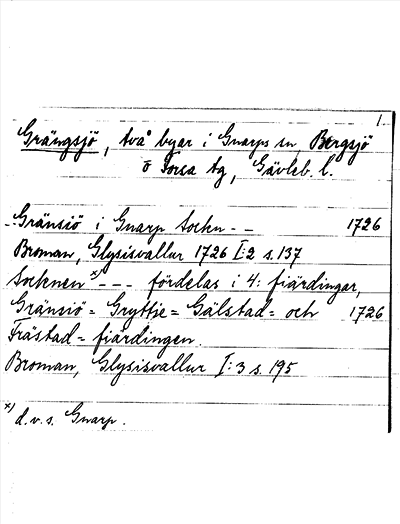 1.
Grängsjö, två byar i Gnarps sn Bergsjö
o Forsa tg, Gävleb. l.
Gränsiö i Gnarp Sockn - - 1726
Broman, Glysisvallur 1726 I:2 s. 137
Socknen x) - - - fördelas i 4: fiärdingar,
Gränsiö = Gryttje = Gälstad = och 1726
Frästad = fiärdingen.
Broman, Glysisvallur I:3 s. 195
x) d.v.s. Gnarp.